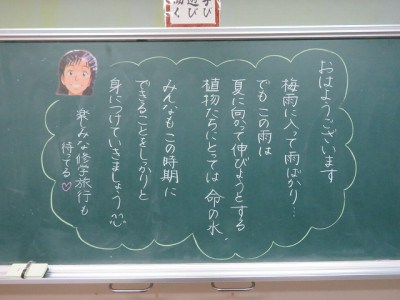 おはようございます
梅雨に入って雨ばかり…
でも この雨は
夏に向かって伸びようとする
植物たちにとっては 命の水。
みんなも この時期に
できることをしっかりと
身につけていきましょう
楽しみな修学旅行も
待ってる♡